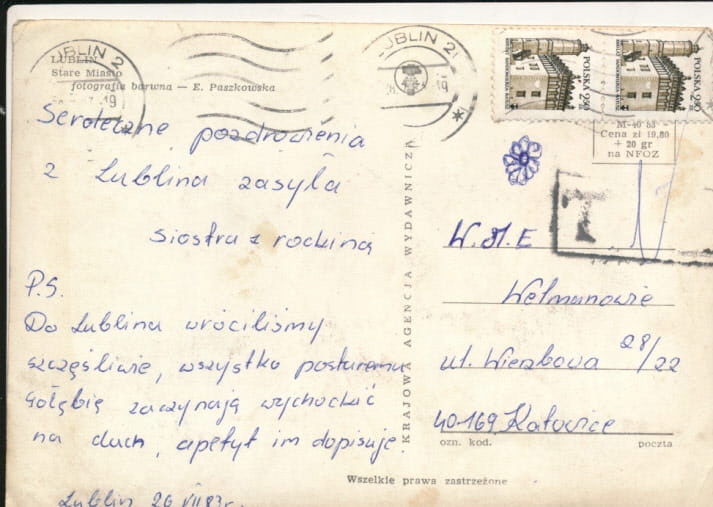 LUBLIN
Stare Miasto
fotografia barwna — E. Paszkowska
LUBLIN 2
19
LUBLIN 21
19
POLSKA 2,50
POLSKA 2,50
M-40 83
Cena zł 19,80
+ 20 gr
na NFOZ
T
Serdeczne pozdrowienia
z Lublina zasyła
siostra z rodziną
P.S.
Do Lublina wróciliśmy
szczęśliwie, wszystko postaremu
Gołębie zaczynają wychodzić
na dach, apetyt im dopisuje.
Lublin 26 VII 83r.
KRAJOWA AGENCJA WYDAWNICZA
W.M.E
Welmanowie
ul. Wierzbowa 28/22
40-169 Katowice
ozn. kod. poczta
Wszelkie prawa zastrzeżone